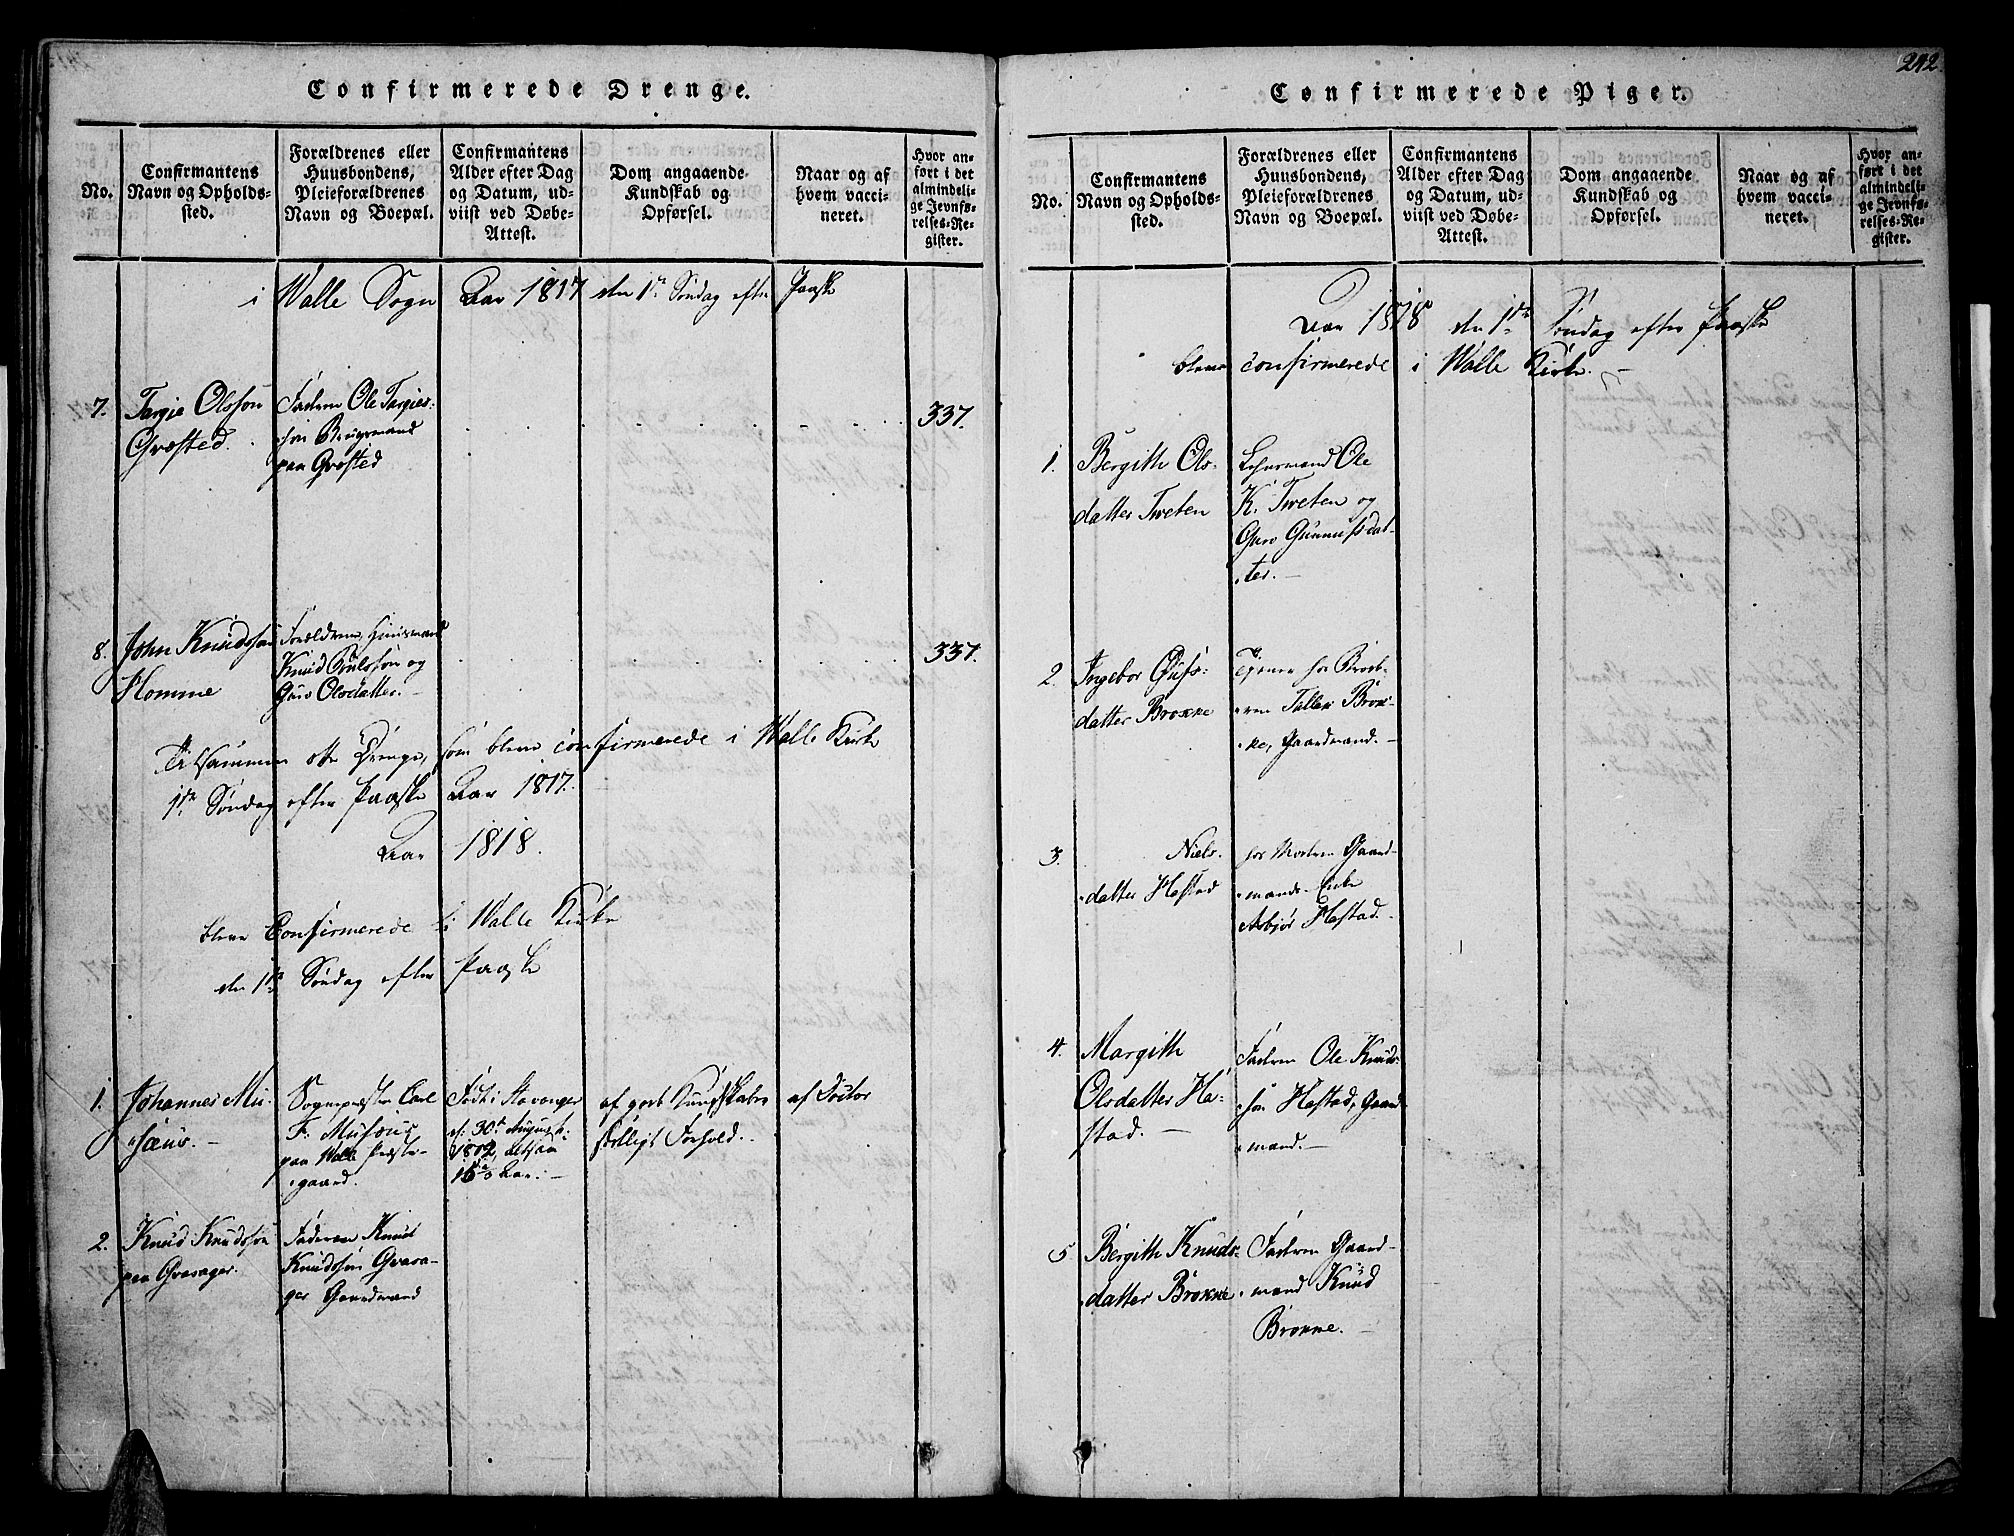 Confirmerede Drenge.
No.
Confirmantens
Navn og Opholds-
sted.
Forældrenes eller
Huusbondens,
Pleieforældrenes
Navn og Boepæl.
Confirmantens
Alder efter Dag
og Datum, ud-
viist ved Døbe-
Attest.
Dom angaaende
Kundskab og
Opførsel.
Naar og af
hvem vacci-
neret.
Hvor an-
ført i det
almindeli-
ge Jevnfø-
relses-Re-
gister.
i Walle Sogn Aar 1817 den 1te Søndag efter Paaske
7.
Targie Olsson
Græsted.
Faderen Ole Targies-
søn Brugsmand
paa Græsted
337.
8.
John Knudssøn
Homme
Forældrene, Huusmand
Knud og
Guro Olsdatter.
337.
Tilsammen otte Drenge, som bleve confirmerede i Walle Kirke
1te Søndag efter Paaske Aar 1817.
Aar 1818.
bleve Confirmerede i Walle Kirke
den 1te Søndag efter Paaske
1.
Johannes Mu-
sæus.
Sognepræsten Carl
F. Musæus
paa Walle Præste-
gaard.
Født i Stavanger
d: 30te August
1802, altsaa
15 Aar.
af god Kundskab
skikkeligt Forhold.
af Doctor
2.
Knud Knudssøn
paa Gvasager.
Faderen Knud
Knudssøn Gvasa-
ger Gaardmand
242.
Confirmerede Piger.
No.
Confirmantens
Navn og Opholds-
sted.
Forældrenes eller
Huusbondens,
Pleieforældrenes
Navn og Boepæl.
Confirmantens
Alder efter Dag
og Datum, ud-
viist ved Døbe-
Attest.
Dom angaaende
Kundskab og
Opførsel.
Naar og af
hvem vacci-
neret.
Hvor an-
ført i det
almindeli-
ge Jevnfø-
relses-Re-
gister.
Aar 1818 den 1te Søndag efter Paaske
bleve confirmerede i Walle Kirke.
1.
Bergith Ols-
datter Tweten
Lehnsmand Ole
K. Tweten og
Guro Gunnufsdat-
ter.
2.
Ingebor
datter Brokke
Tjener hos Brod-
ren Tallev Brok-
ke, Gaardmand.
3.
Niels-
datter Hastad
hos Gaard-
mands Enke
Asbjør Hastad.
4.
Margith
Olsdatter Ha-
stad.
Faderen Ole Knuds-
søn Hastad, Gaard-
mand.
5
Bergith Knuds-
datter Brokke
Faderen Gaard-
mand Knud
Brokke.